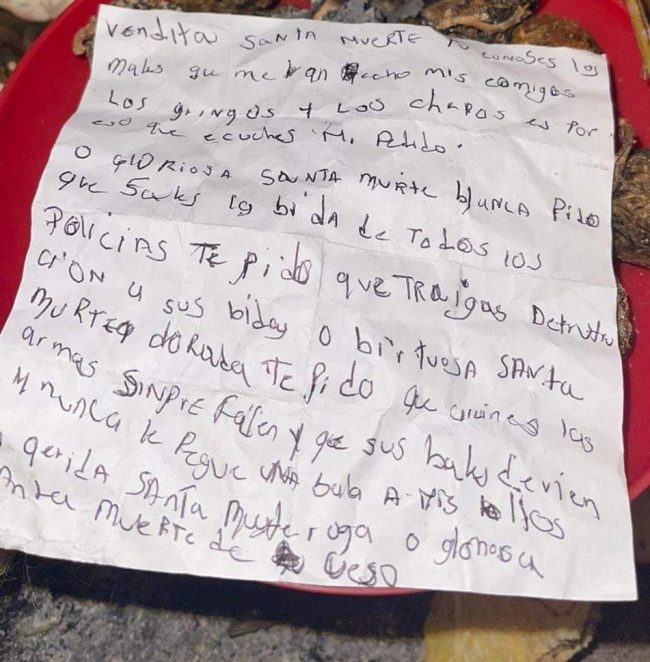 vendita SANTA MUERTE tu conoses los
malos que me han echo mis emigos
Los gringos + Los chapos es por
eso que ecuches Mi Pedido.
O GlORiosA SANTA muRte blANCA Pido
que Sales la bidA de ToDos los
POLICIAS TE pido que TRAigas Detrutu
ciON a sus bidas o birtuosA SANta
MuRte doRada TE Pido que las
armas SiNPRE FallEN y que sus balas devien
y nunca le Pegue uNA bala A Mis
qeridA SANTA Muerte roga o gloriosa
Anta mUERTE de ueso